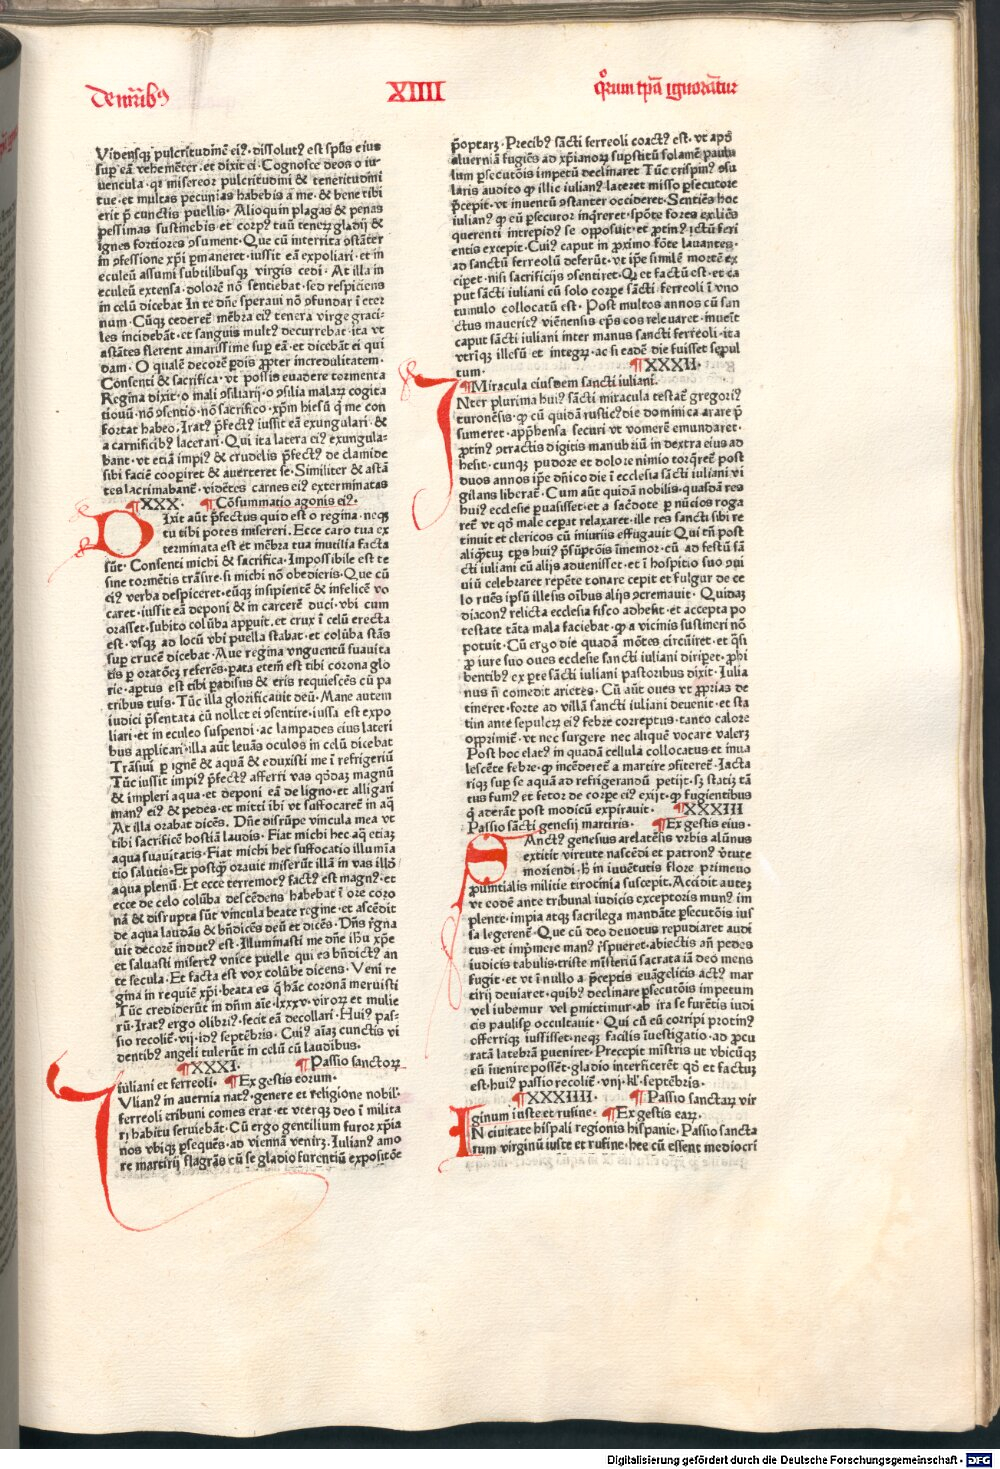 De mr̄ribꝰ
XIIII
q̊rum tpa ignorātur
Vidensqꝫ pulcritudinē eiꝰ· dissolutꝰ est spūs eius
sup eā vehemēter· et dixit ei· Cognosce deos o iu
uencula· qꝛ misereor pulcritudini & teneritudini
tue· et multas pecunias habebis a me· & bene tibi
erit p̄ cunctis puellis· Alioquin plagas & penas
pessimas sustinebis· et corpꝰ tuū teneꝝ gladij &
ignes fortiores ꝯsument· Que cū interrita ꝯstāter
in ꝯfessione xp̄i ꝑmaneret· iussit eā expoliari· et in
eculeū assumi subtilibusqꝫ virgis cedi· At illa in
eculeū extensa· dolorē nō sentiebat· sed respiciens
in celū dicebat In te dn̄e speraui nō ꝯfundar ī eter
num· Cūqꝫ cederent̄ mēbra eiꝰ tenera virge graci-
les incidebāt· et sanguis multꝰ decurrebat· ita vt
astātes flerent amarissime sup eā· et dicebāt ei qui
dam· O qualē decorē ꝑdis ꝓpter incredulitatem·
Consenti & sacrifica· vt possis euadere tormenta
Regina dixit· o mali ꝯsiliarij· o ꝯsilia malaꝝ cogita
tionū· nō ꝯsentio· nō sacrifico· xp̄m hiesū q̄ me con
fortat habeo· Iratꝰ p̄fectꝰ iussit eā exungulari· &
a carnificibꝰ lacerari· Qui ita latera eiꝰ exungula-
bant· vt etiā impiꝰ & crudelis p̄fectꝰ de clamide
sibi faciē cooꝑiret & auerteret se· Similiter & astā
tes lacrimabanť· vidētes carnes eiꝰ exterminatas
¶XXX· ¶Cōsummatio agonis eiꝰ·
Dixit aūt p̄fectus quid est o regina· neqꝫ
tu tibi potes misereri· Ecce caro tua ex
terminata est et mēbra tua inutilia facta
sūt· Consenti michi & sacrifica· Impossibile est te
sine tormētis trāsire· si michi nō obedieris· Que cū
eiꝰ verba despiceret· eūqꝫ insipientē & infelicē vo
caret· iussit eā deponi & in carcerē duci· vbi cum
orasset· subito colūba apꝑuit· et crux ī celū erecta
est· vsqꝫ ad locū vbi puella stabat· et colūba stās
sup crucē dicebat· Aue regina vnguentū suauita
tis ꝑ oratōeꝫ referēs· ꝑata etem̄ est tibi corona glo
rie· aptus est tibi ꝑadisus & eris requiescēs cū pa
tribus tuis· Tūc illa glorificauit deū· Mane autem
iudici p̄sentata cū nollet ei ꝯsentire· iussa est expo
liari· et in eculeo suspendi· ac lampades eius lateri
bus applicari· illa aūt leuās oculos in celū dicebat
Trāsiui ꝑ ignē & aquā & eduxisti me ī refrigeriū
Tūc iussit impiꝰ p̄fectꝰ afferri vas qōdaꝫ magnū
& impleri aqua· et deponi eā de ligno· et alligari
manꝰ eiꝰ & pedes· et mitti ibi vt suffocareť in aq̄
At illa orabat dicēs· Dn̄e disrūpe vincula mea vt
tibi sacrificē hostiā laudis· Fiat michi hec aq̄ etiaꝫ
aqua suauitatis· Fiat michi hec suffocatio illumīa
tio salutis· Et postqꝫ orauit miserūt illā in vas illḋ
aqua plenū· Et ecce terremotꝰ factꝰ est magnꝰ· et
ecce de celo colūba descēdens habebat ī ore coro
nā & disrupta sūt vincula beate regine· et ascēdit
de aqua laudās & bn̄dicēs deū et dicēs· Dn̄s r̄gna
uit decorē indutꝰ est· Illuminasti me dn̄e ih̄u xp̄e
et saluasti misertꝰ vnice puelle qui es bn̄dictꝰ an
te secula· Et facta est vox colūbe dicens· Veni re
gina in requiē xp̄i· beata es q̄ hāc coronā meruisti
Tūc crediderūt in dn̄m aīe· lxxxv· viroꝝ et mulie
rū· Iratꝰ ergo olibriꝰ· fecit eā decollari· Huiꝰ pas-
sio recoliť· vij· idꝰ septēbris· Cuiꝰ aīaꝫ cunctis vi
dentibꝰ angeli tulerūt in celū cū laudibus·
¶XXXI· ¶Passio sanctoꝝ
iuliani et ferreoli· ¶Ex gestis eorum·
IVlianꝰ in auernia natꝰ· genere et religione nobil·
ferreoli tribuni comes erat· et vterqꝫ deo ī milita
ri habitu seruiebāt· Cū ergo gentilium furor xp̄ia
nos vbiqꝫ ꝑsequēs· ad viennā veniꝝ· Iulianꝰ amo
re martirij flagrās cū se gladio furentiū expositōe
p̄optarꝫ· Precibꝰ sācti ferreoli coactꝰ est· vt apḋ
aluerniā fugiēs ad xp̄ianoꝝ suꝑstitū solamē paulu
lum ꝑsecutōis impetū declinaret Tūc crispinꝰ ꝯsu
laris audito ꝙ illic iulianꝰ lateret misso ꝑsecutore
p̄cepit· vt inuentū ꝯstanter occideret· Sentiēs hoc
iulianꝰ ꝙ eū ꝑsecutor inq̄reret· spōte fores exliēs
querenti intrepidꝰ se opposuit· et ꝓtinꝰ ictū feri
entis excepit· Cuiꝰ caput in ꝓximo fōte lauantes·
ad sanctū ferreolū deferūt· vt ip̄e similē mortē ex
cipet· nisi sacrificijs ꝯsentiret· Qḋ et factū est· et ca
put sācti iuliani cū solo corꝑe sācti ferreoli ī vno
tumulo collocatū est· Post multos annos cū san
ctus mauertꝰ viēnensis ep̄s eos releuaret· inuenit
caput sācti iuliani inter manus sancti ferreoli· ita
vtriqꝫ illesū et integꝝ· ac si eadē die fuisset sepul
tum· ¶XXXII·
¶Miracula eiusdem sancti iuliani·
INter plurima huiꝰ sācti miracula testať gregoriꝰ
turonēsis· ꝙ cū quidā rusticꝰ die dominica arare p̄
sumeret· app̄hensa securi vt vomerē emundaret·
ꝓtinꝰ ꝯtractis digitis manubriū in dextra eius ad
hesit· cunqꝫ pudore et dolore nimio torq̄reť post
duos annos ip̄e dn̄ico die ī ecclesia sācti iuliani vi
gilans liberať· Cum aūt quidā nobilis· quasdā res
huiꝰ ecclesie ꝑuasisset· et a sac̄dote ꝑ nūcios roga
reť vt qḋ male ceꝑat relaxaret· ille res sancti sibi re
tinuit et clericos cū iniuriis effugauit Qui tn̄ post
aliq̄ntuꝫ tꝑs huiꝰ p̄sūptōis īmemor· cū ad festū sā
cti iuliani cū alijs aduenisset· et ī hospitio suo ꝯui
uiū celebraret repēte tonare cepit et fulgur de ce
lo ruēs ipsū illesis oībus alijs ꝯcremauit· Quidaꝫ
diaconꝰ relicta ecclesia fisco adhesit· et accepta po
testate tāta mala faciebat· ꝙ a vicinis sustineri nō
potuit· Cū ergo die quadā mōtes circūiret· et q̄si
ꝓ iure suo oues ecclesie sancti iuliani diriꝑet· ꝓhi
bentibꝰ ex ꝑte sācti iuliani pastoribus dixit· Iulia
nus n̄ comedit arietes· Cū aūt oues vt ꝓprias de
tineret· forte ad villā sancti iuliani deuenit· et sta
tim ante sepulcꝝ eiꝰ febre correptus· tanto calore
opprimiť· vt nec surgere nec aliquē vocare valeꝝ
Post hoc elatꝰ in quadā cellula collocatus et inua
lescēte febre· ꝙ incēdereť a martire ꝯfitereť· Iacta
riqꝫ sup se aquā ad refrigerandū petijt· sꝫ statiꝫ tā
tus fumꝰ et fetor de corꝑe eiꝰ exijt· ꝙ fugientibus
q̄ aderāt post modicū expirauit· ¶XXXIII
Passio sācti genesij martiris· ¶Ex gestis eius·
SAnctꝰ genesius arelatēsis vrbis alūnus
extitit virtute nascēdi et patronꝰ v̄tute
moriendi· h̄ in iuuētutis flore primeuo
ꝓuintialis militie tirocinia suscepit· Accidit auteꝫ
vt eodē ante tribunal iudicis exceptoris munꝰ im
plente· impia atqꝫ sacrilega mandāte ꝑsecutōis ius
sa legerenť· Que cū deo deuotus repudiaret audi
tus· et imp̄mere manꝰ r̄spueret· abiectis an̄ pedes
iudicis tabulis· triste mīsteriū sacrata iā deo mens
fugit· et vt ī nullo a p̄ceptis euāgelicis actꝰ mar
tirij deuiaret· quibꝰ declinare ꝑsecutōis impetum
vel iubemur vel ꝑmittimur· ab ira se furētis iudi
cis paulisꝑ occultauit· Qui cū eū corripi protinꝰ
offerriqꝫ iussisset· neqꝫ facilis īuestigatio· ad ꝓcu
ratā latebrā ꝑueniret· Precepit mīstris ut vbicūqꝫ
eū īuenire posset· gladio interficeret qḋ et factuꝫ
est· huiꝰ passio recoliť· viij· kl̄· septēbris·
¶XXXIIII· ¶Passio sanctaꝝ vir
ginum iuste et rufine· ¶Ex gestis eaꝝ·
IN ciuitate hispali regionis hispanie· Passio sancta
rum virginū iuste et rufine· hec cū essent mediocri
Digitalisierung gefördert durch die Deutsche Forschungsgemeinschaft - DFG